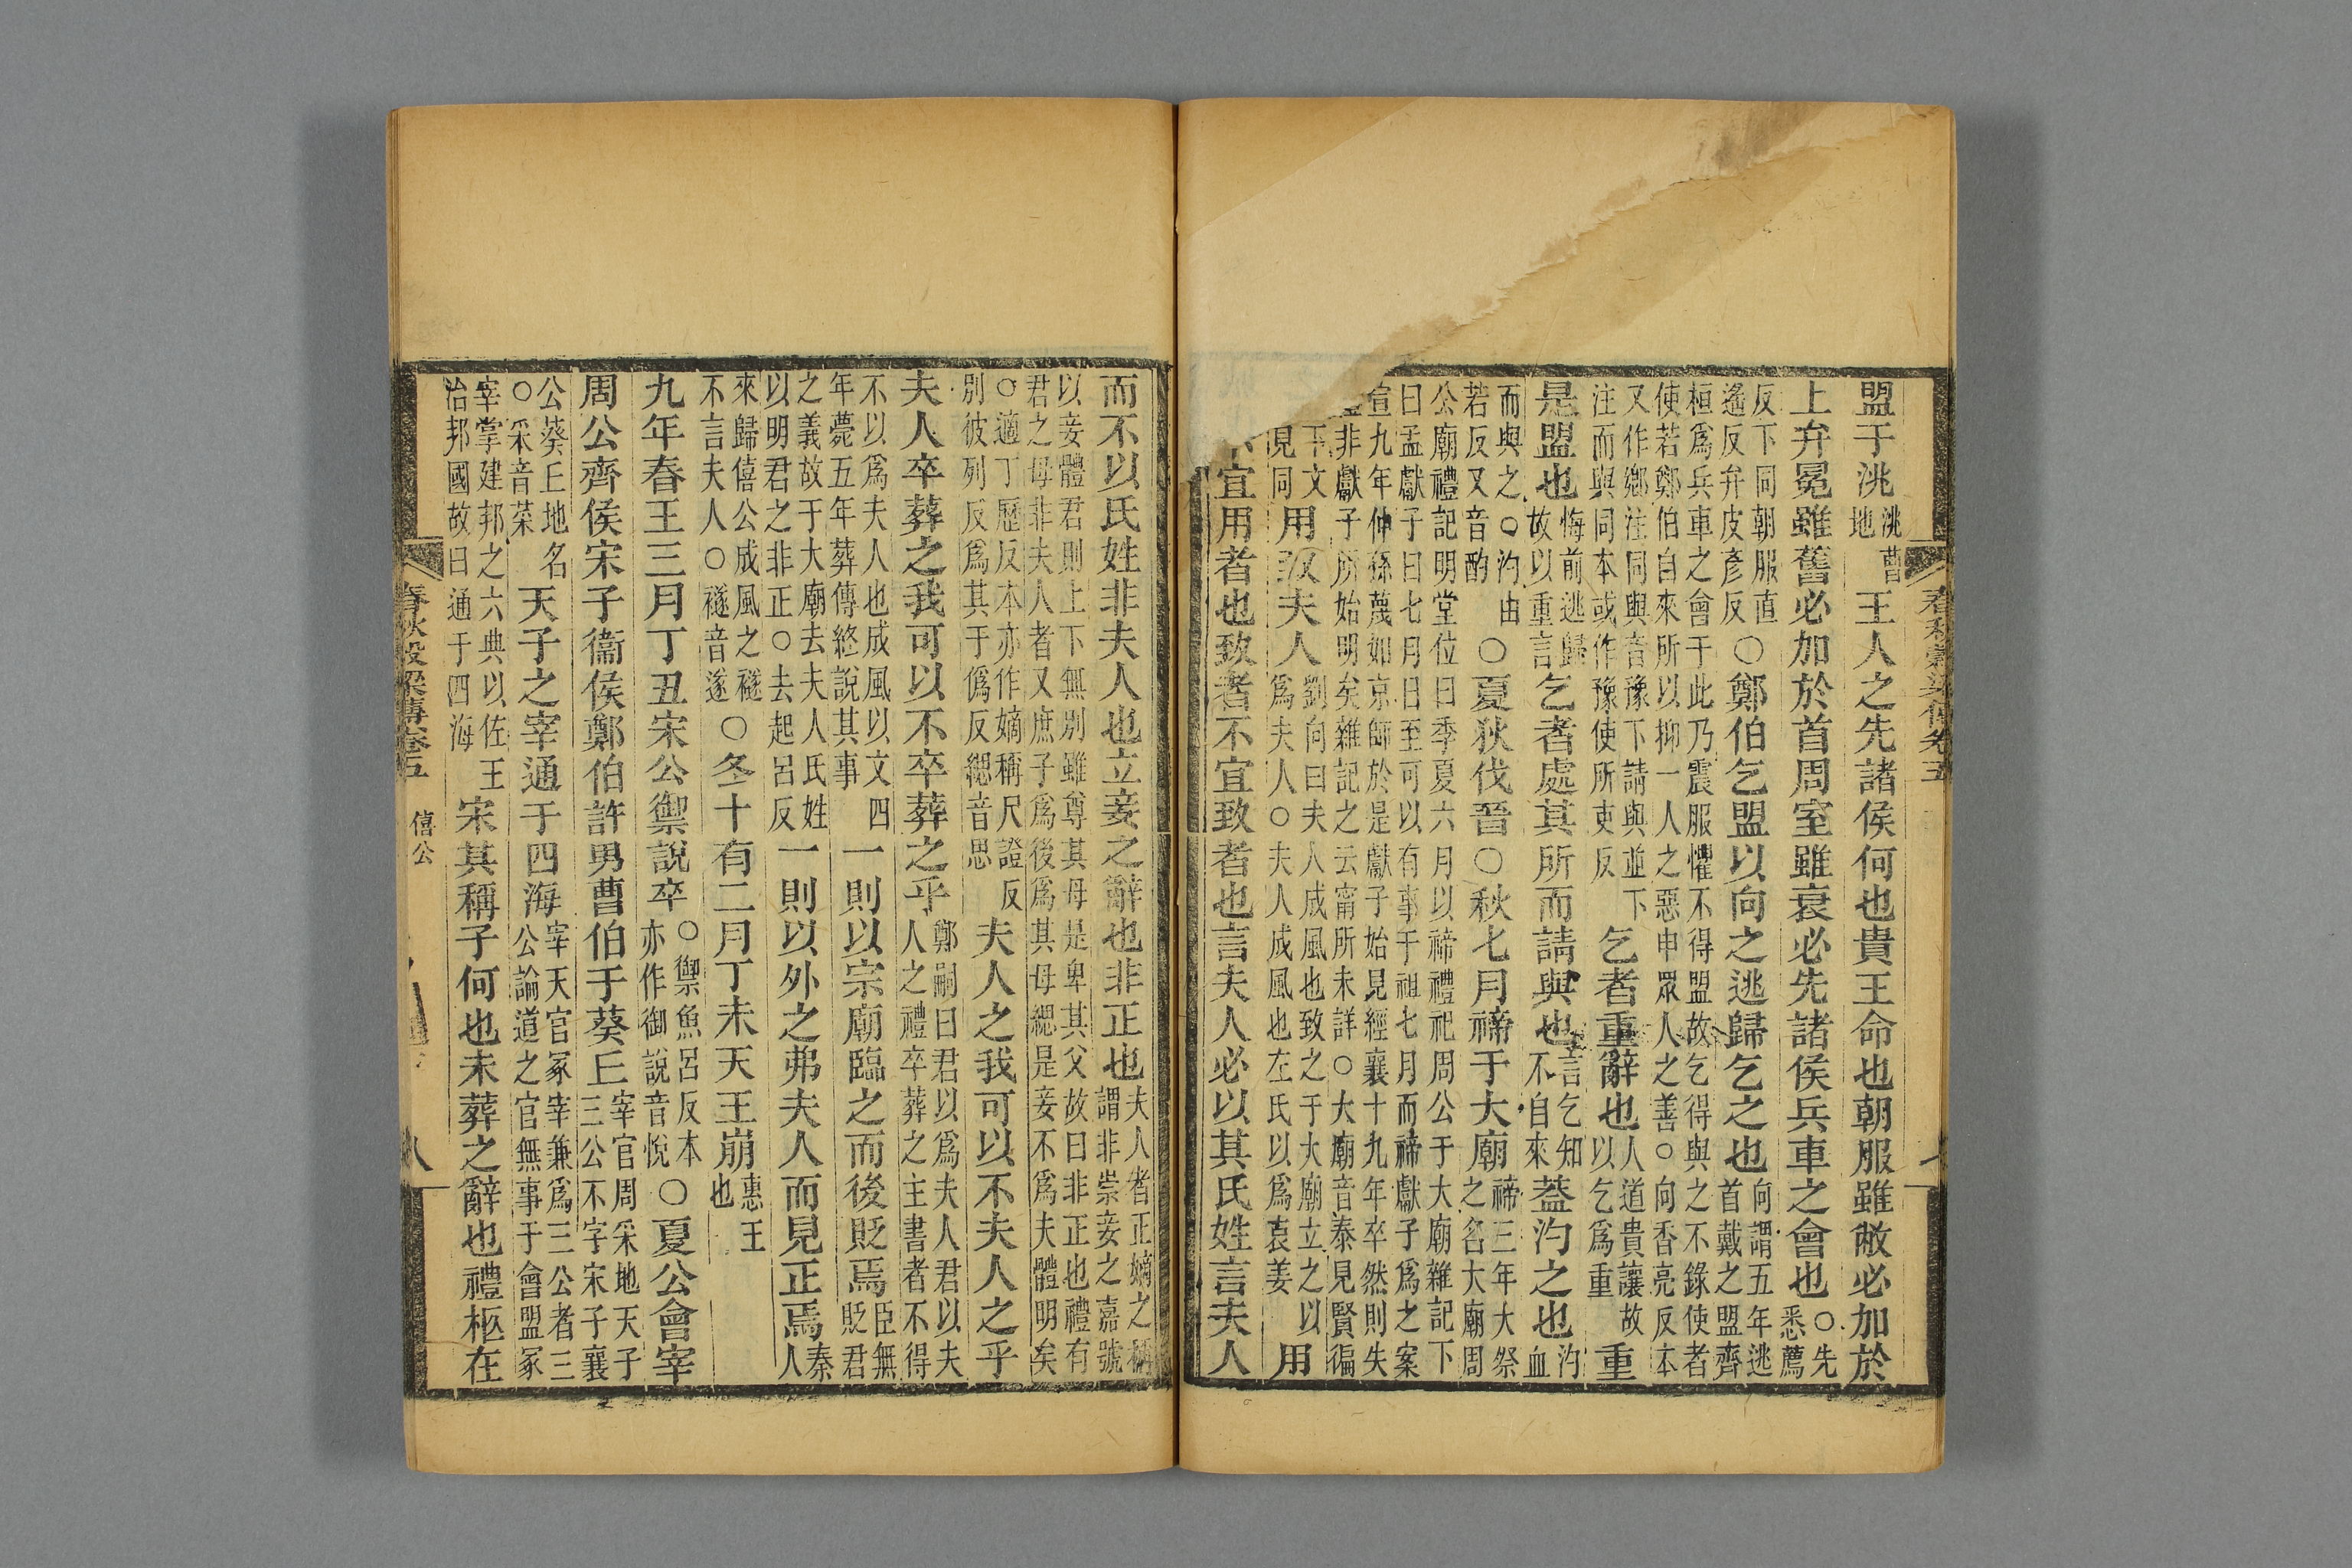 春秋穀梁傳卷五 七
盟于洮洮曹地王人之先諸侯何也貴王命也朝服雖敝必加於
上弁冕雖舊必加於首周室雖衰必先諸侯兵車之會也○先悉薦
反下同朝服直遙反弁皮彥反○鄭伯乞盟以向之逃歸乞之也向謂五年逃首戴之盟齊
桓爲兵車之會于此乃震服懼不得盟故乞得與之不錄使者使若鄭伯自來所以抑一人之惡申眾人之善○向香亮反本
又作鄉注同與音豫下請與並下注而與同本或作豫使所吏反乞者重辭也人道貴讓故以乞爲重重
是盟也悔前逃歸故以重言乞者處其所而請與也言乞知不自來蓋汋之也汋血
而與之○汋由若反又音酌○夏狄伐晉○秋七月禘于大廟禘三年大祭之名大廟周
公廟禮記明堂位曰季夏六月以禘禮祀周公于大廟雜記下曰孟獻子曰七月日至可以有事于祖七月而禘獻子爲之案
宣九年仲孫蔑如京師於是獻子始見經襄十九年卒然則失非獻子所始明矣雜記之云甯所未詳○大廟音泰見賢徧
下文見同用致夫人劉向曰夫人成風也致之于大廟立之以爲夫人○夫人成風也左氏以爲哀姜用
宜用者也致者不宜致者也言夫人必以其氏姓言夫人
而不以氏姓非夫人也立妾之辭也非正也夫人者正嫡之稱謂非崇妾之嘉號
以妾體君則上下無別雖尊其母是卑其父故曰非正也禮有君之母非夫人者又庶子爲後爲其母緦是妾不爲夫體明矣
○適丁歷反本亦作嫡稱尺證反別彼列反爲其于僞反緦音思夫人之我可以不夫人之乎
夫人卒葬之我可以不卒葬之乎鄭嗣曰君以爲夫人君以夫人之禮卒葬之主書者不得
不以爲夫人也成風以文四年薨五年葬傳終說其事一則以宗廟臨之而後貶焉臣無貶君
之義故于大廟去夫人氏姓以明君之非正○去起呂反一則以外之弗夫人而見正焉秦人
來歸僖公成風之襚不言夫人○襚音遂○冬十有二月丁未天王崩惠王也
九年春王三月丁丑宋公禦說卒○禦魚呂反本亦作御說音悅○夏公會宰
周公齊侯宋子衞侯鄭伯許男曹伯于葵丘宰官周采地天子三公不字宋子襄
公葵丘地名○采音菜天子之宰通于四海宰天官冢宰兼爲三公者三公論道之官無事于會盟冢
宰掌建邦之六典以佐王治邦國故曰通于四海宋其稱子何也未葬之辭也禮柩在
春秋穀梁傳卷五 僖公 八